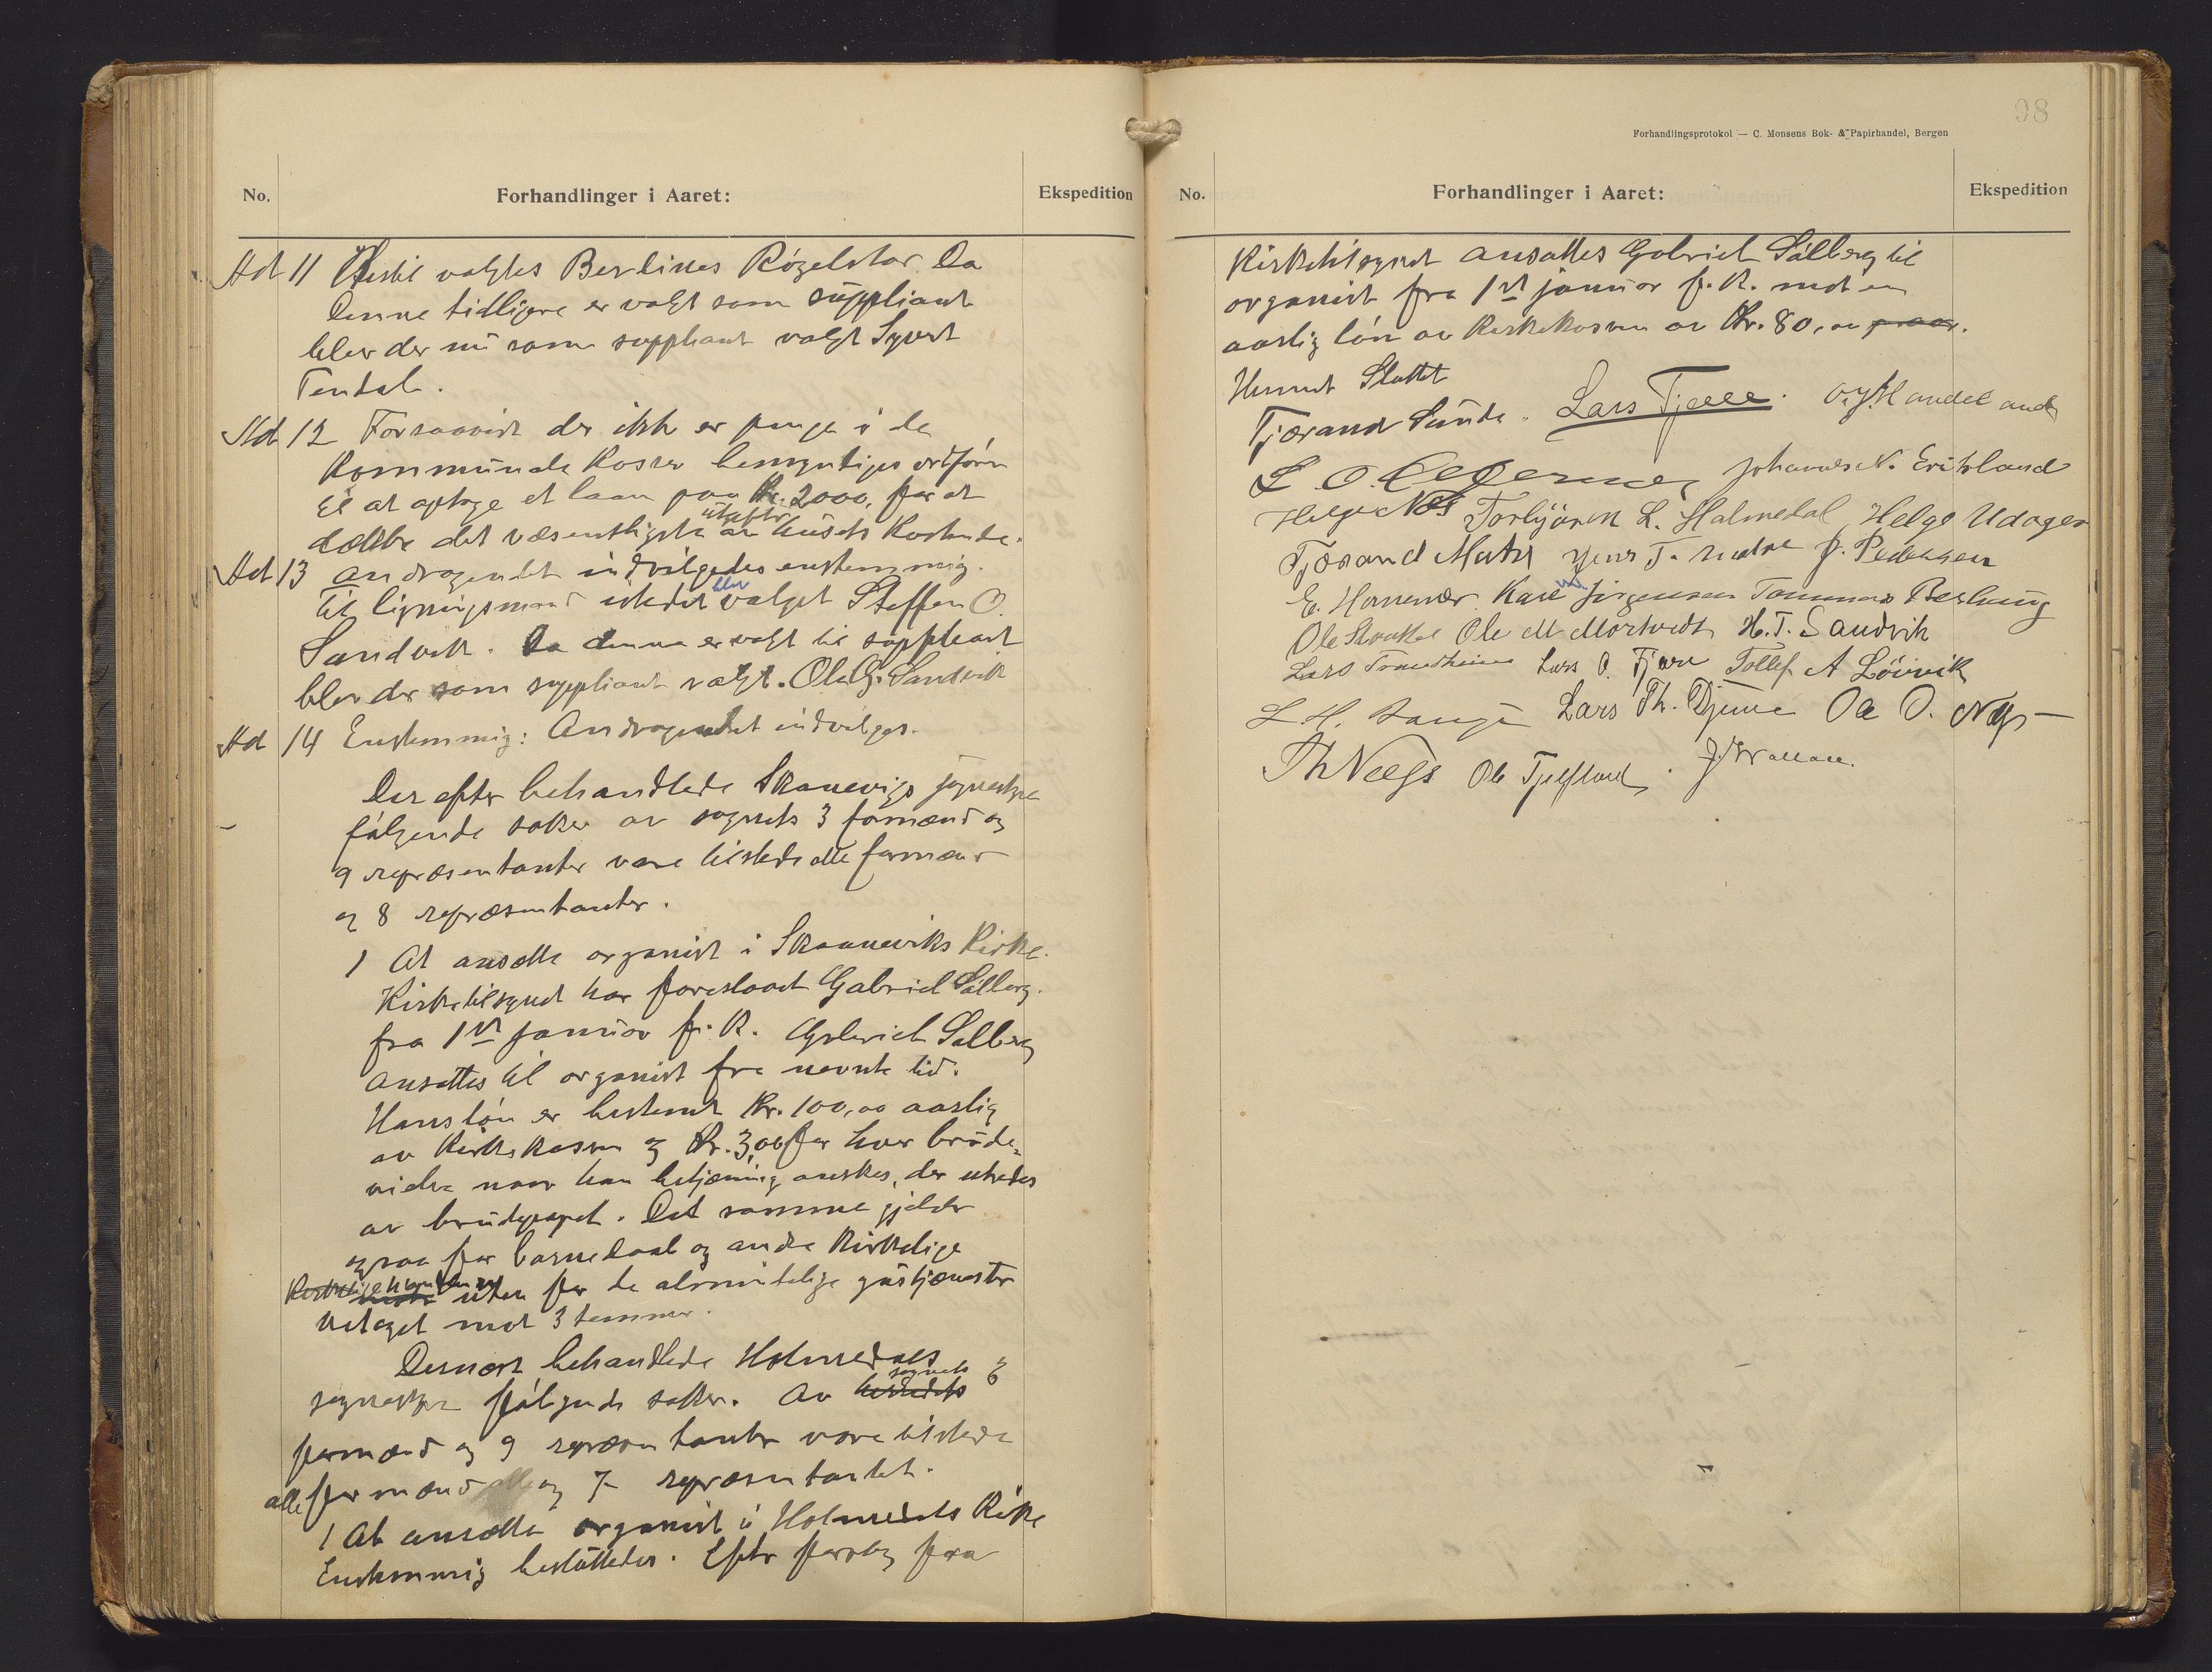 No. Forhandlinger i Aaret: Ekspedition
Ad 11 Hertil valgtes Berlines Røgelstar. Da
Denne tidligere er valgt som suppliant
blev der nu som suppliant valgt Syvert
Tendal.
Ad 12 Forsaavidt der ikke er penge i de
kommunale kasser bemyndiges ordføren
til at optage et laan paa Kr. 2000, for at
dække det væsentligste av husets kostende.
Ad 13 Andragendet indvilgedes enstemmig.
Til ligningsmand istedet blev valget Steffen O.
Sandvik. Da denne er valgt til suppleant
blev der som suppliant valgt. Ole G. Sandvik
Ad 14 Enstemmig: Andragendet indvilges.
Der efter behandlede Skanevigs sognestyre
følgende saker av sognets 3 formænd og
9 repræsentanter vare tilstede alle formænd
og 8 repræsentanter.
1 At ansætte organist i Skaaneviks Kirke.
Kirketilsynet har foreslaaet Gabriel Sälberg.
fra 1st januar f. k. Gabriel Sälberg
ansættes til organist fra nevnte tid.
Hans løn er bestemt Kr. 100,00 aarlig
av kirkekassen og Kr. 3,00 for hver brude=
vielse naar han betjæning ønskes, der utredes
av brudeparet. Det samme gjelder
ogsaa for barnedaab og andre kirkelige
kirkelige handlinger uten for de almindelige gustjænester
Vedtaget mot 3 stemmer.
Dernæst behandlede Holmedals
sognestyre følgende saker. Av herredets sognets 3
formænd og 9 repræsentanter vare tilstede
alle formænd og 7 repræsentantet.
1 At ansætte organist i Holmedals Kirke
Enstemmig besluttedes. Efter forslag fra
98
Forhandlingsprotokol — C. Monsens Bok- & Papirhandel, Bergen
No. Forhandlinger i Aaret: Ekspedition
Kirketilsynet ansættes Gabriel Sälberg til
organist fra 1st januar f. k. mot en
aarlig løn av kirkekassen av Kr. 80,00 pr aar.
Hermet Sluttet
Tjærand Sunde. Lars Tjelle.
Johannes N. Eriksland
Helge Næs Torbjørn L. Halmedal Helge Udager
Tjærand Matre Jens T. Matre P. Pedersen
Karl Jørgensen Tommas Beshung
Ole M Mortvedt H. T. Sandvik
Lars Trondheim Lars O. Fjære Tollef A Løivik
Lars Th. Djuve Ole O. Næs
Ole Tjelfland